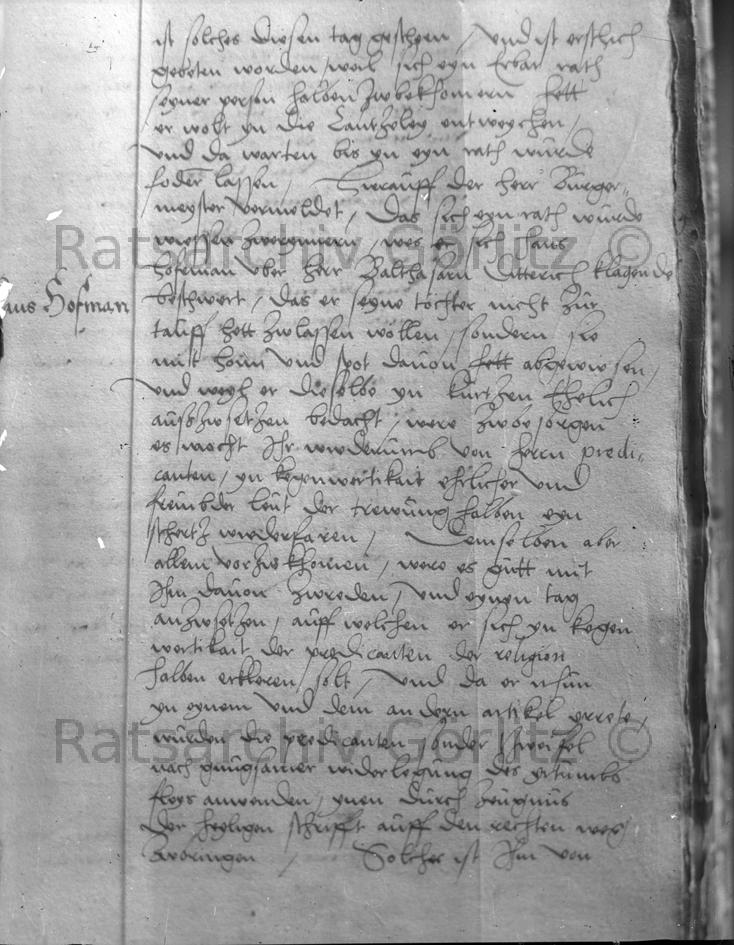 ist solches diesen tag geschehen, Und ist erstlich
gebeten worden, weil sich eyn Erbar rath
seyner person halben zwbekhomern hett
er wolt yn die Cantzeley entweychen,
Und da warten bis yn eyn rath wurde
fodern lassen, Hirauff der herr Burger-
meyster vermeldet, Das sich eyn rath wurde
wissen zw erynnern, wes er sich Hans
Hofeman uber herr Balthasarn Ditterich klagende
Hans Hofman
beschwert, das er seyne tochter nicht zur
tauff hett zwlassen wollen, sondern sie
mit honn und spot davon hett abgewiesen,
Und weyl er dieselbe yn kurtzen Ehelich
auszwsetzen bedacht, were zwbesorgen
es mocht Ihr widerumb von herrn predi-
canten, yn kegenwertikait ehrlicher und
frembder leut der trewung halben eyn
schertz wiederfaren, Demselben aber
allem vorzwkhomen, were es gutt mit
Ihm davon zwreden, Und eynen tag
anzwsetzen, auff welchen er sich yn kegen
wertikait der predicanten der religion
halben erkleren solt, Und da er nhun
yn eynem und dem andern artikel yrrete,
wurden die predicanten sonder zweifel
nach gnugsamer widerlegung des yrtumbs
fleys anwenden, ynen durch zeugnus
der heyligen schrifft auff den rechten weg
zwbringen, Solches ist Ihm von
Ratsarchiv Görlitz ©
Ratsarchiv Görlitz ©